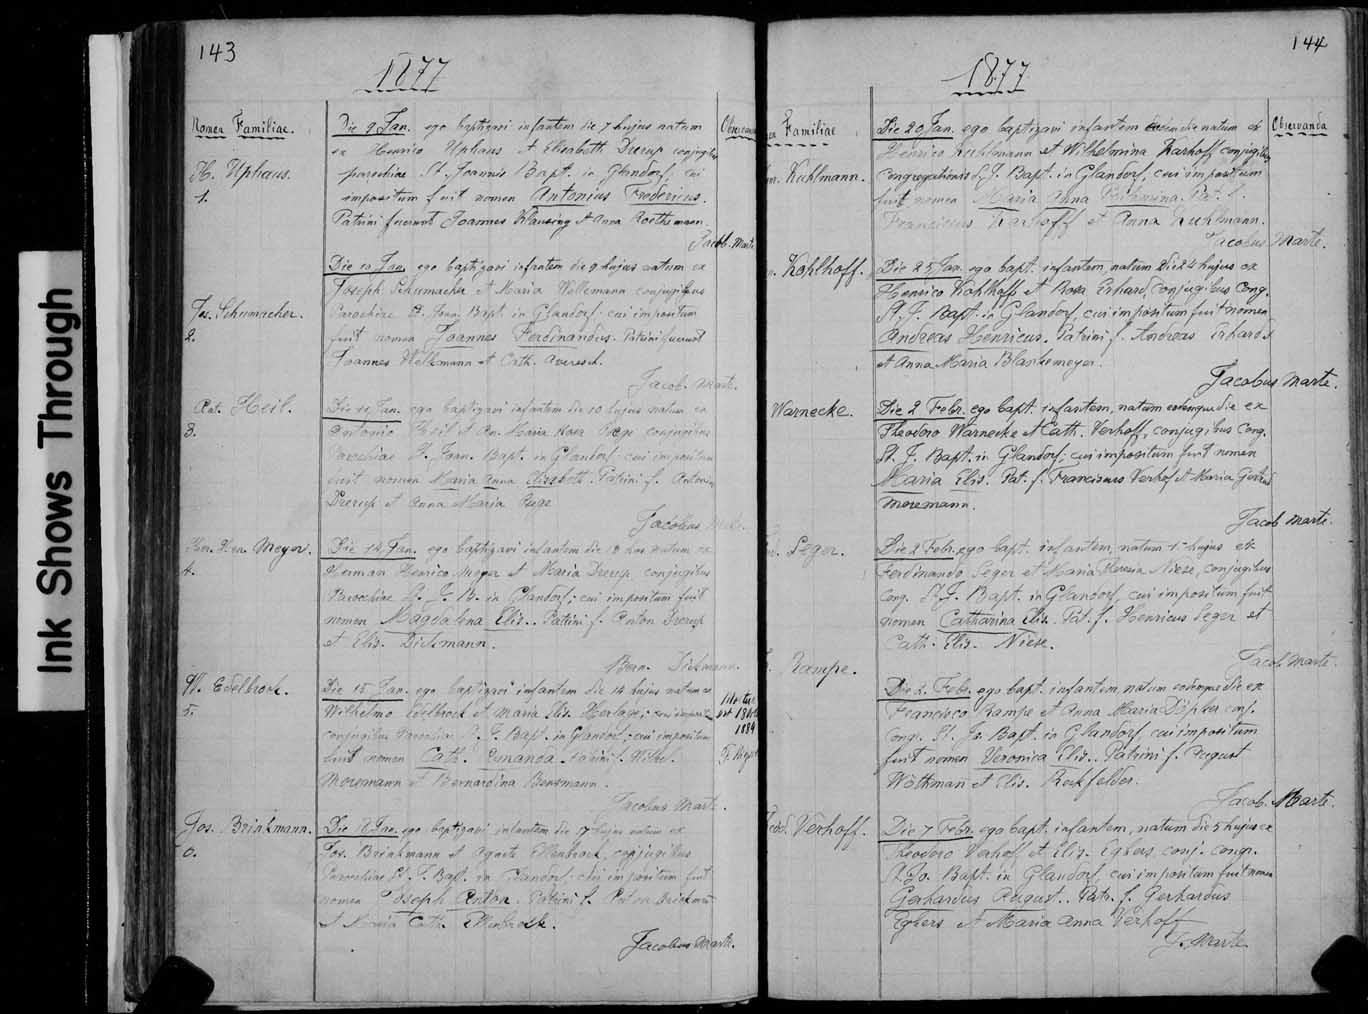 Ink Shows Through
143
1877
Nomen Familiae.
Observanda
H. Uphaus.
1.
Die 9 Jan. ego baptizavi infantem die 7 hujus natum
ex Henrico Uphaus et Elisabeth Drerup conjugibus
parochiae St. Joannis Bapt. in Glandorf, cui
impositum fuit nomen Antonius Fredericus.
Patrini fuerunt Joannes Klausing et Anna Roethemann
Jacob. Marte
Jos. Schumacher.
2.
Die 10 Jan. ego baptizavi infantem die 9 hujus natum ex
Joseph Schumacher et Maria Wellemann conjugibus
Parochiae St. Joan. Bapt. in Glandorf, cui impositum
fuit nomen Joannes Ferdinandus. Patrini fuerunt
Joannes Wellemann et Cath. Averesch.
Jacob. Marte.
Ant. Heil.
3.
Die 11 Jan. ego baptizavi infantem die 10 hujus natum ex
Antonio Heil et An. Maria Rosa conjugibus
Parochiae S. Joan. Bapt. in Glandorf, cui impositum
fuit nomen Maria Anna Elisabeth. Patrini f. Antonius
Drerup et Anna Maria
Jacobus Marte.
Her. Hen. Meyer.
4.
Die 14 Jan. ego baptizavi infantem die 13 hus natum ex
Herman Henrico Meyer et Maria Drerup conjugibus
Parochiae St. J. B. in Glandorf; cui impositum fuit
nomen Magdalina Elis. Patrini f. Anton Drerup
et Elis. Dickmann.
Bern. Dickmann.
W. Edelbrock.
5.
Die 15 Jan. ego baptizavi infantem die 14 hujus natum ex
Wilhelmo Edelbrock et Maria Elis. Herlage; cui imposit
conjugibus Parochiae S. J. Bapt. in Glandorf; cui impositum
fuit nomen Cath. Patrini f. Wilhel.
Moremann et Bernardina Bensmann.
Jacobus Marte.
1884
F. Meyer
Jos. Brinkmann.
6.
Die 18 Jan. ego baptizavi infantem die 17 hujus natum ex
Jos. Brinkmann et Agnete Ellenbrock, conjugibus
Parochiae St. J. Bapt. in Glandorf; cui impositum fuit
nomen Joseph Anton. Patrini f. Anton Brinkman
et Maria Cath. Ellenbrock.
Jacobus Marte.
144
1877
Familiae
Observanda
Kuhlmann.
Die 20 Jan. ego baptizavi infantem eademdie natum ex
Henrico Kuhlmann et Wilhelmina Karhoff, conjugibus
Congregationis S. J. Bapt. in Glandorf, cui impositum
fuit nomen Maria Anna Philomina. Pat. f.
Franciscus Karhoff et Anna Kuhlmann.
Jacobus Marte.
Kohlhoff.
Die 25 Jan. ego bapt. infantem, natum die 24 hujus ex
Henrico Kohlhoff et Rosa Erhard, conjugibus Cong.
St. J. Bapt. in Glandorf, cui impositum fuit nomen
Andreas Henricus. Patrini f. Andreas Erhard
et Anna Maria Blankemeyer.
Jacobus Marte.
Warnecke.
Die 2 Febr. ego bapt. infantem, natum eodemque die ex
Theodoro Warnecke et Cath. Verhoff, conjugibus Cong.
St. J. Bapt. in Glandorf, cui impositum fuit nomen
Maria Elis. Pat. f. Franciscus Verhof et Maria Gertrud
Moremann.
Jacob Marte.
Seger.
Die 2 Febr. ego bapt. infantem, natum 1 hujus ex
Ferdinando Seger et Maria Theresia Niese, conjugibus
Cong. St. J. Bapt. in Glandorf, cui impositum fuit
nomen Catharina Elis. Pat. f. Henricus Seger et
Cath. Elis. Niese.
Jacob Marte.
Rampe.
Die 2. Febr. ego bapt. infantem, natum eodemque die ex
Francisco Rampe et Anna Maria Döpker conj.
Cong. St. Jo. Bapt. in Glandorf, cui impositum
fuit nomen Veronica Elis. Patrini f. August
Wöthmann et Elis. Reckfelder.
Jacob. Marte.
Verhoff.
Die 7 Febr. ego bapt. infantem, natum die 5 hujus ex
Theodoro Verhoff et Elis. Egbers, conj. congr.
S. Jo. Bapt. in Glandorf, cui impositum fuit nomen
Gerhardus August. Patr. f. Gerhardus
Egbers et Maria Anna Verhoff
J. Marte